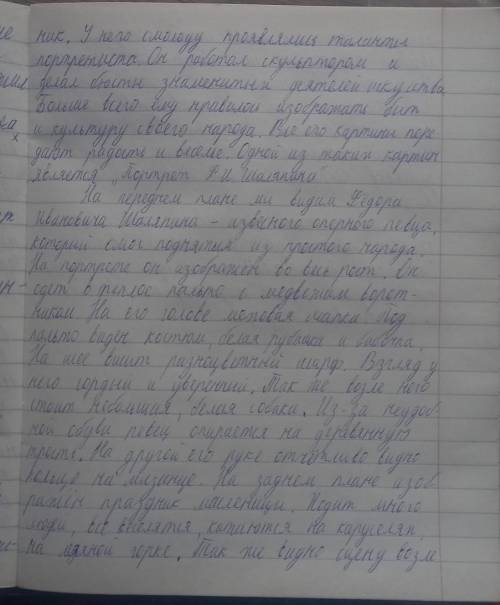 ник. У него смолоду проявлялись таланты
портретиста. Он работал скульптором и
делал бюсты знаменитых деятелей искуства
Больше всего ему нравилось изображать быт
и культуру своего народа. Все его картины пере
дают радость и веселье. Одной из таких картин
является „Портрет Ф.И Шаляпина"
На переднем плане ми видим Федора
Ивановича Шаляпина - извесного оперного певца,
который смог подняться из простого народа.
На портрете он изображён во весь рост. Он
одет в теплое пальто с медвежим ворот-
ником На его голове меховая шапка. Под
пальто виден костюм, белая рубашка и бабочка.
На шее висит разноцветный шарф. Взгляд у
него гордый и уверенный. Так же возле него
стоит небольшая, белая собака. Из-за неудоб-
ной обуви певец опирается на деревянную
трость. На другой его руке отчётливо видно
кольцо на мизинце. На заднем плане изоб
ражён праздник масленицы. Ходит много
люди, все веселятся, катаются на каруселях,
на ледяной горке. Так же видно сцену возле